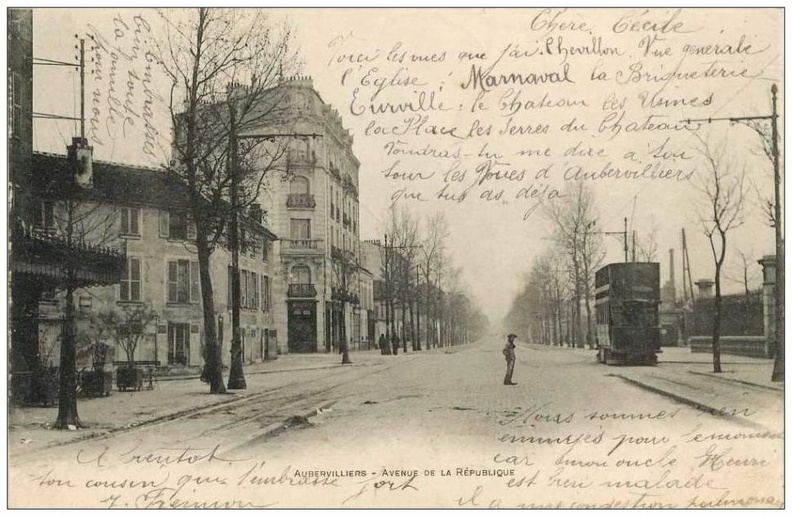 Chère Cécile
Voici les vues que j'ai. Chevillon Vue generale
l'Eglise; Marnaval la Briqueterie
Eurville: le Chateau les Usines
la Place les Serres du Chateau
Voudras-tu me dire à ton
tour les Vues d'Aubervilliers
que tu as déja
Nous sommes bien
ennuyés pour le moment
car mon oncle Henri
est très malade
il a une congestion pulmonaire
A bientot
ton cousin qui t'embrasse fort
Y. Fremion
Embrassez
bien toute
la famille
pour nous
Aubervilliers - Avenue de la République